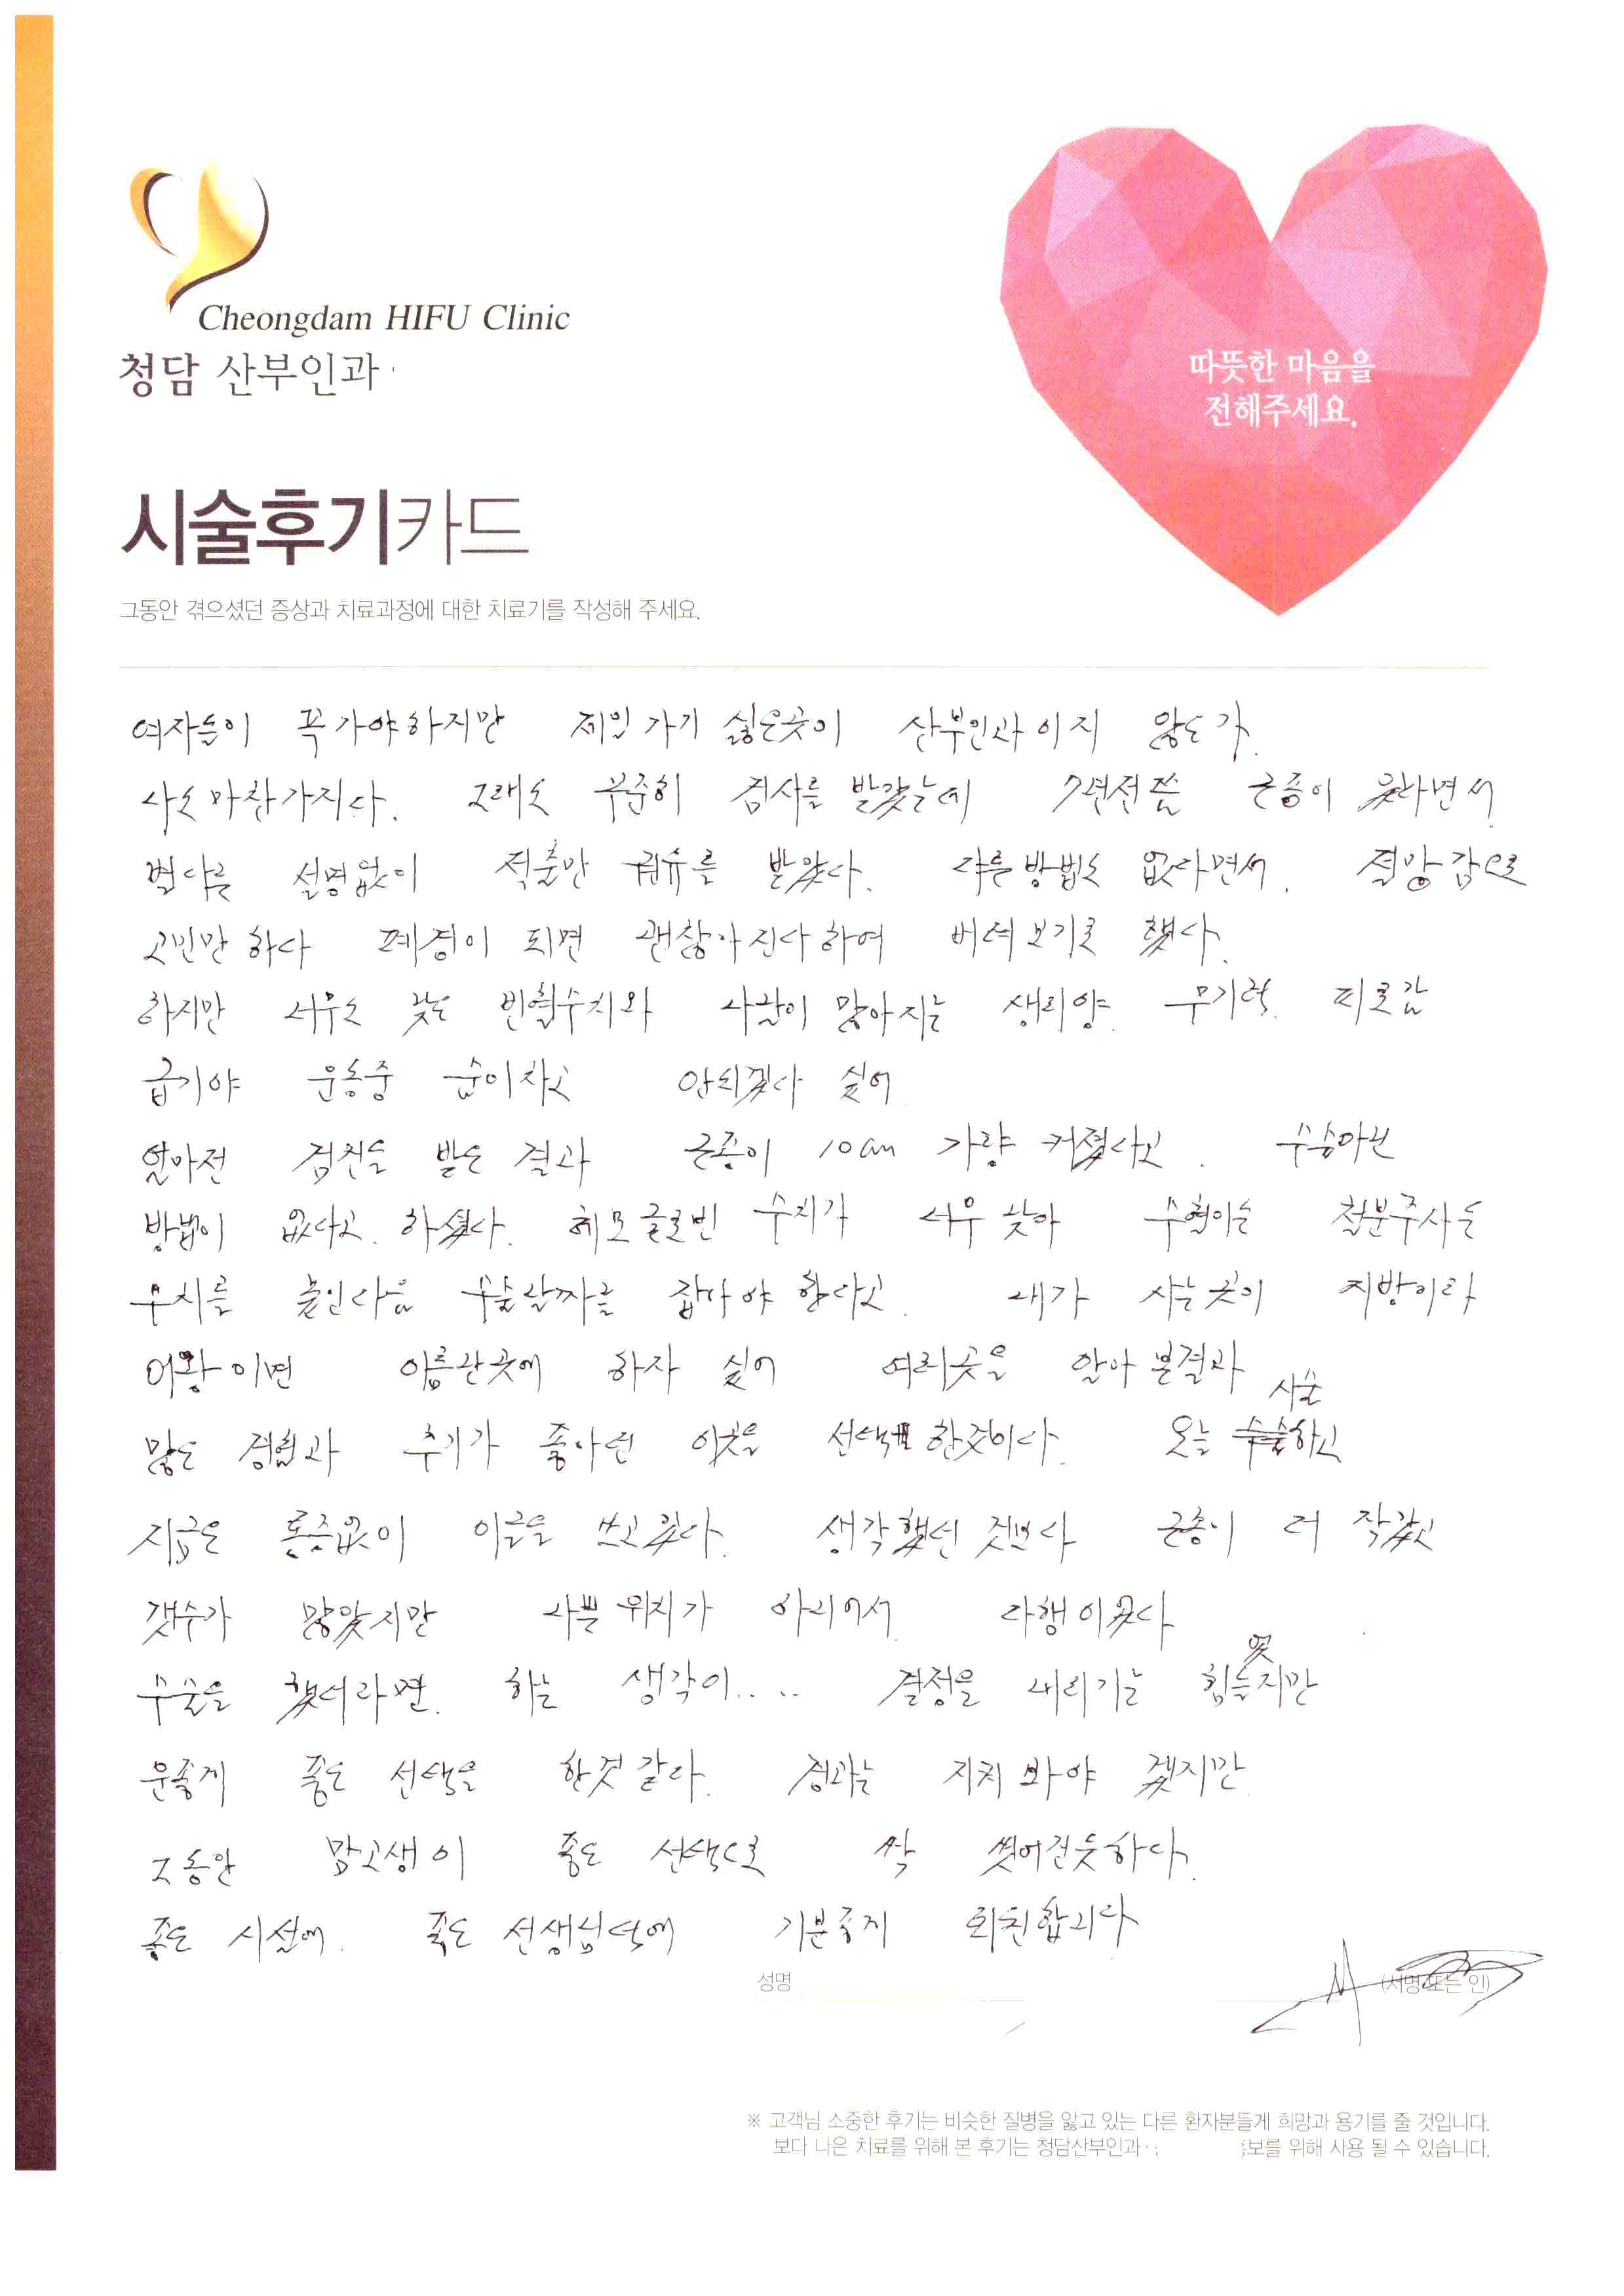 Cheongdam HIFU Clinic
청담 산부인과
따뜻한 마음을
전해주세요.
시술후기카드
그동안 겪으셨던 증상과 치료과정에 대한 치료기를 작성해 주세요.
여자들이 꼭 가야하지만 제일 가기 싫은곳이 산부인과 이지 않은가.
나도 마찬가지다. 그래도 꾸준히 검사를 받았는데 7년전쯤 근종이 있다면서
별다른 설명없이 적출만 권유를 받았다. 다른 방법도 없다면서. 절망감으로
고민만 하다 폐경이 되면 괜찮아진다 하여 버텨보기로 했다.
하지만 너무도 낮은 빈혈수치와 나날이 많아지는 생리양. 무기력. 피로감
급기야 운동중 숨이차고 안되겠다 싶어
얼마전 검진을 받은 결과 근종이 10cm 가량 커졌다고. 수술아닌
방법이 없다고. 하셨다. 헤모글로빈 수치가 너무 낮아 수혈이든 철분주사든
수치를 높인다음 수술날짜를 잡아야 한다고. 내가 사는곳이 지방이라
이왕이면 이름난곳에 하자 싶어 여러곳을 알아본결과
많은 경험과 후기가 좋아던 이곳을 선택한것이다. 오늘 시술하고
지금은 통증없이 이글을 쓰고있다. 생각했던 것보다 근종이 더 작았고
갯수가 많았지만 나쁜 위치가 아니어서 다행이였다
수술을 했더라면. 하는 생각이..... 결정을 내리기는 힘들었지만
운좋게 좋은 선택을 한것 같다. 경과는 지켜봐야 겠지만
그동안 맘고생이 좋은 선택으로 싹 씻어진듯하다.
좋은 시설에. 좋은 선생님덕에 기분좋게 퇴원합니다
성명
(서명 또는 인)
※ 고객님 소중한 후기는 비슷한 질병을 앓고 있는 다른 환자분들게 희망과 용기를 줄 것입니다.
보다 나은 치료를 위해 본 후기는 청담산부인과 홍보를 위해 사용 될 수 있습니다.